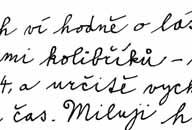 h ví hodně o lás
mi kolibříků –
4, a určitě vych
čas. Miluji h